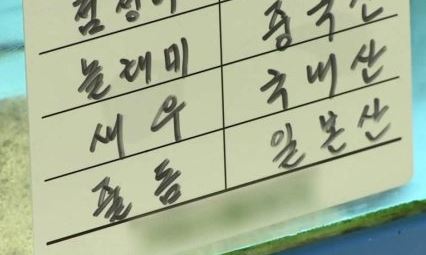 놀래미 중국산
새우 국내산
돔 일본산